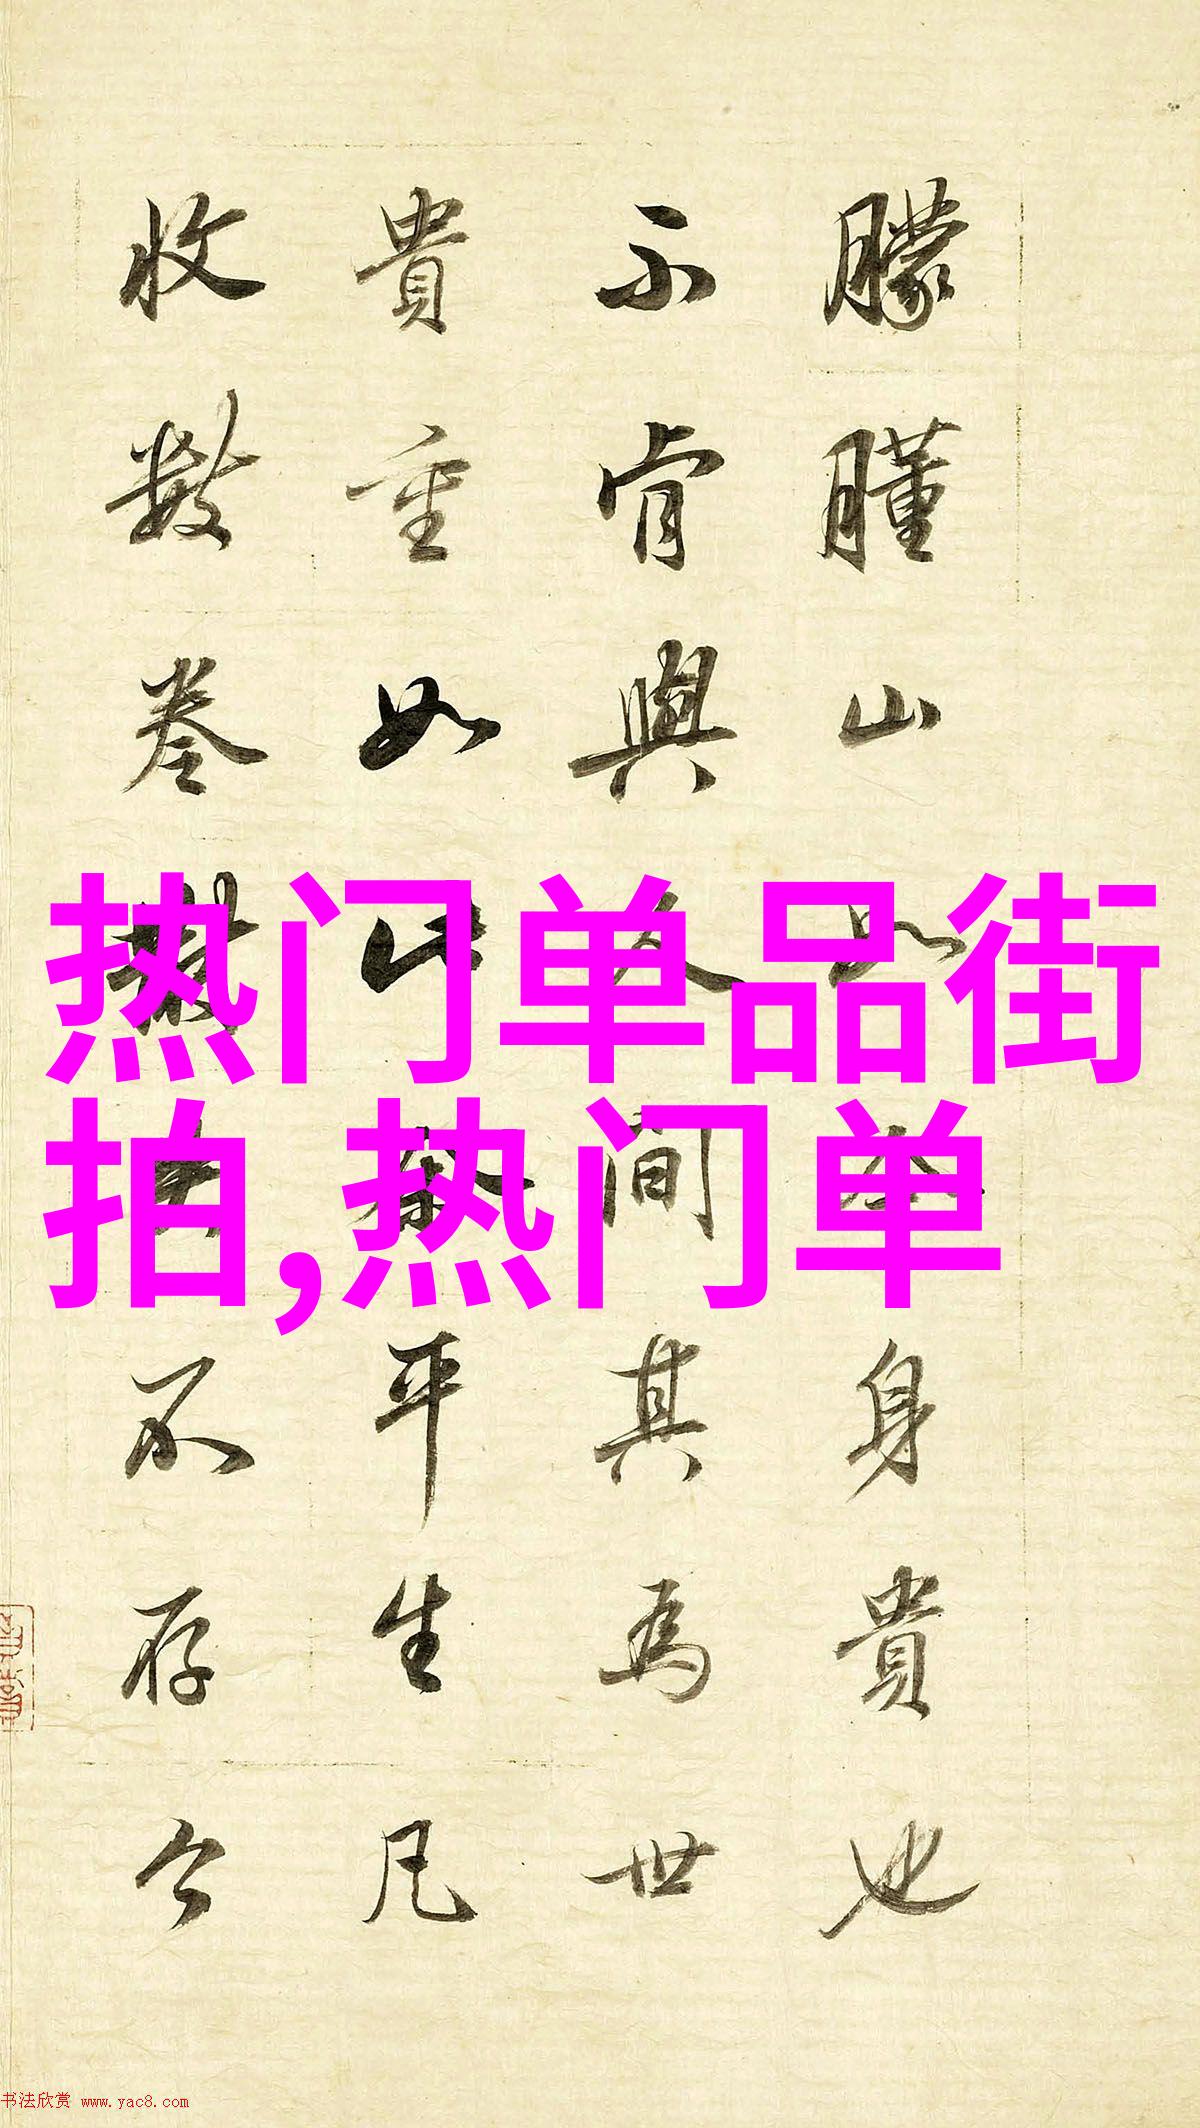 朦朣山
身貴也
不肯與
間其為世
貴重如
平生凡
收數卷
不存今
热门单品街
拍,热门单
书法欣赏 www.yac8.com